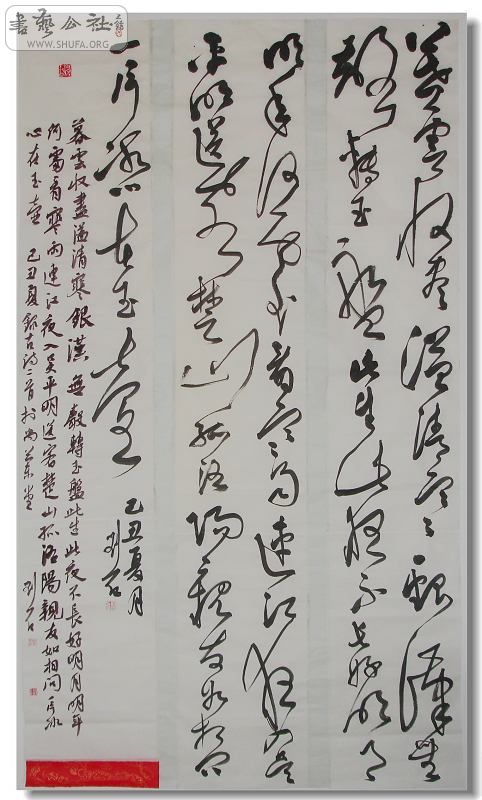 書藝公社
WWW.SHUFA.ORG
暮雲收盡溢清寒銀漢無
聲轉玉盤此生此夜不長好明月
明年何處看寒雨連江夜入吳
平明送客楚山孤洛陽親友如相問
一片冰心在玉壺
己丑夏月
暮雲收盡溢清寒銀漢無聲轉玉盤此生此夜不長好明月明年
何處看寒雨連江夜入吳平明送客楚山孤洛陽親友如相問一片冰
心在玉壺 己丑夏錄古詩二首於